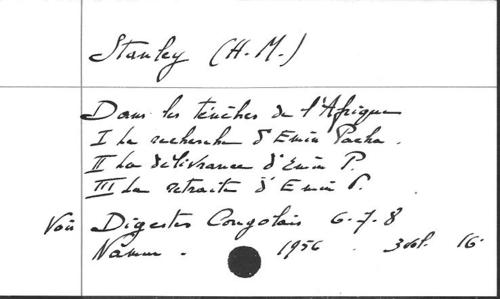 Stanley (H.M.)
Dans les ténèbres de l'Afrique
I La recherche d'Emin Pacha.
II La délivrance d'Emin P.
III La retraite d'Emin P.
Voir Digestes Congolais 6-7-8
Namur. 1956. 3 vol. 16